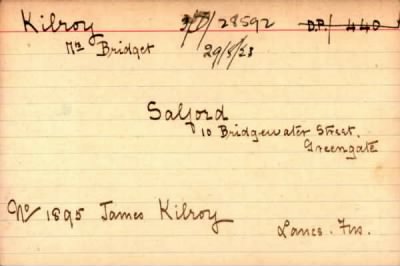 Kilroy 3/D/ 28592 D.P./ 440
Mrs Bridget 29/5/23
Salford
10 Bridgewater Street.
Greengate
No/ 1895 James Kilroy
Lancs. Fus.